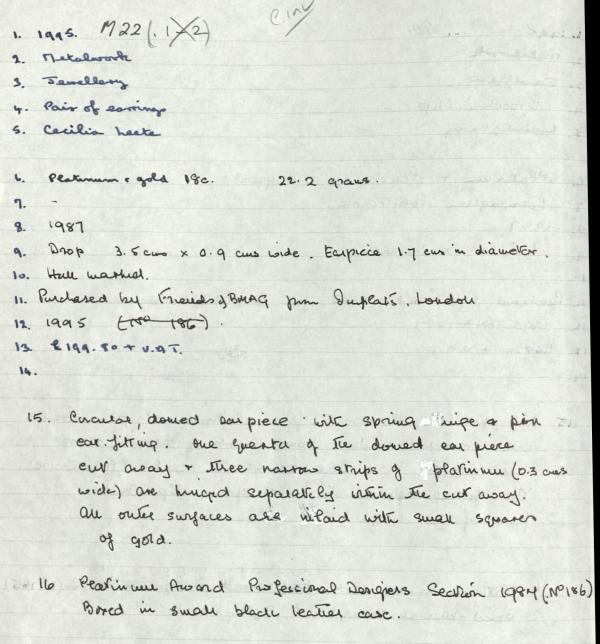 1. 1995. M22 (.1-2)
2. Metalwork
3. Jewellery
4. Pair of earrings
5. Cecilia
6. Platinum & gold 18c. 22.2 grams.
7. -
8. 1987
9. Drop 3.5 cms x 0.9 cms wide. Earpiece 1.7 cms in diameter.
10. Hall marked.
11. Purchased by Friends of BMAG from London
12. 1995 (No 186).
13. £199.80 + V.A.T.
14.
15. Circular, domed ear piece with spring hinge & pin
ear-fitting. One quarter of the domed ear piece
cut away & three narrow strips of platinum (0.3 cms
wide) are hinged separately within the cut away.
All outer surfaces are inlaid with small squares
of gold.
16 Platinum Award Professional Designers Section 1987 (No 186)
Boxed in small black leather case.